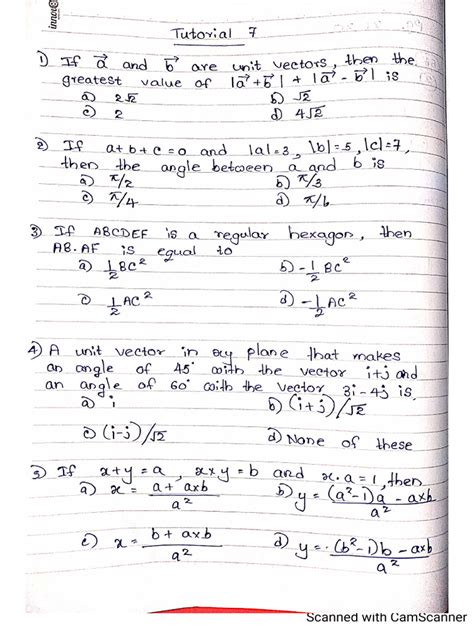 Tutorial 7
1) If a⃗ and b⃗ are unit vectors, then the
greatest value of |a⃗+b⃗| + |a⃗-b⃗| is
a) 2√2 b) √2
c) 2 d) 4√2
2) If a+b+c=0 and |a|=3, |b|=5, |c|=7,
then the angle between a and b is
a) π/2 b) π/3
c) π/4 d) π/6
3) If ABCDEF is a regular hexagon, then
AB.AF is equal to
a) 1/2 BC² b) -1/2 BC²
c) 1/2 AC² d) -1/2 AC²
4) A unit vector in xy plane that makes
an angle of 45° with the vector i+j and
an angle of 60° with the vector 3i-4j is,
a) i b) (i+j)/√2
c) (i-j)/√2 d) None of these
5) If x+y=a, x×y=b and x.a=1, then
a) x = (a+a×b)/a² b) y = ((a²-1)a - a×b)/a²
c) x = (b+a×b)/a² d) y = (b²-1)b - a×b/a²
Scanned with CamScanner